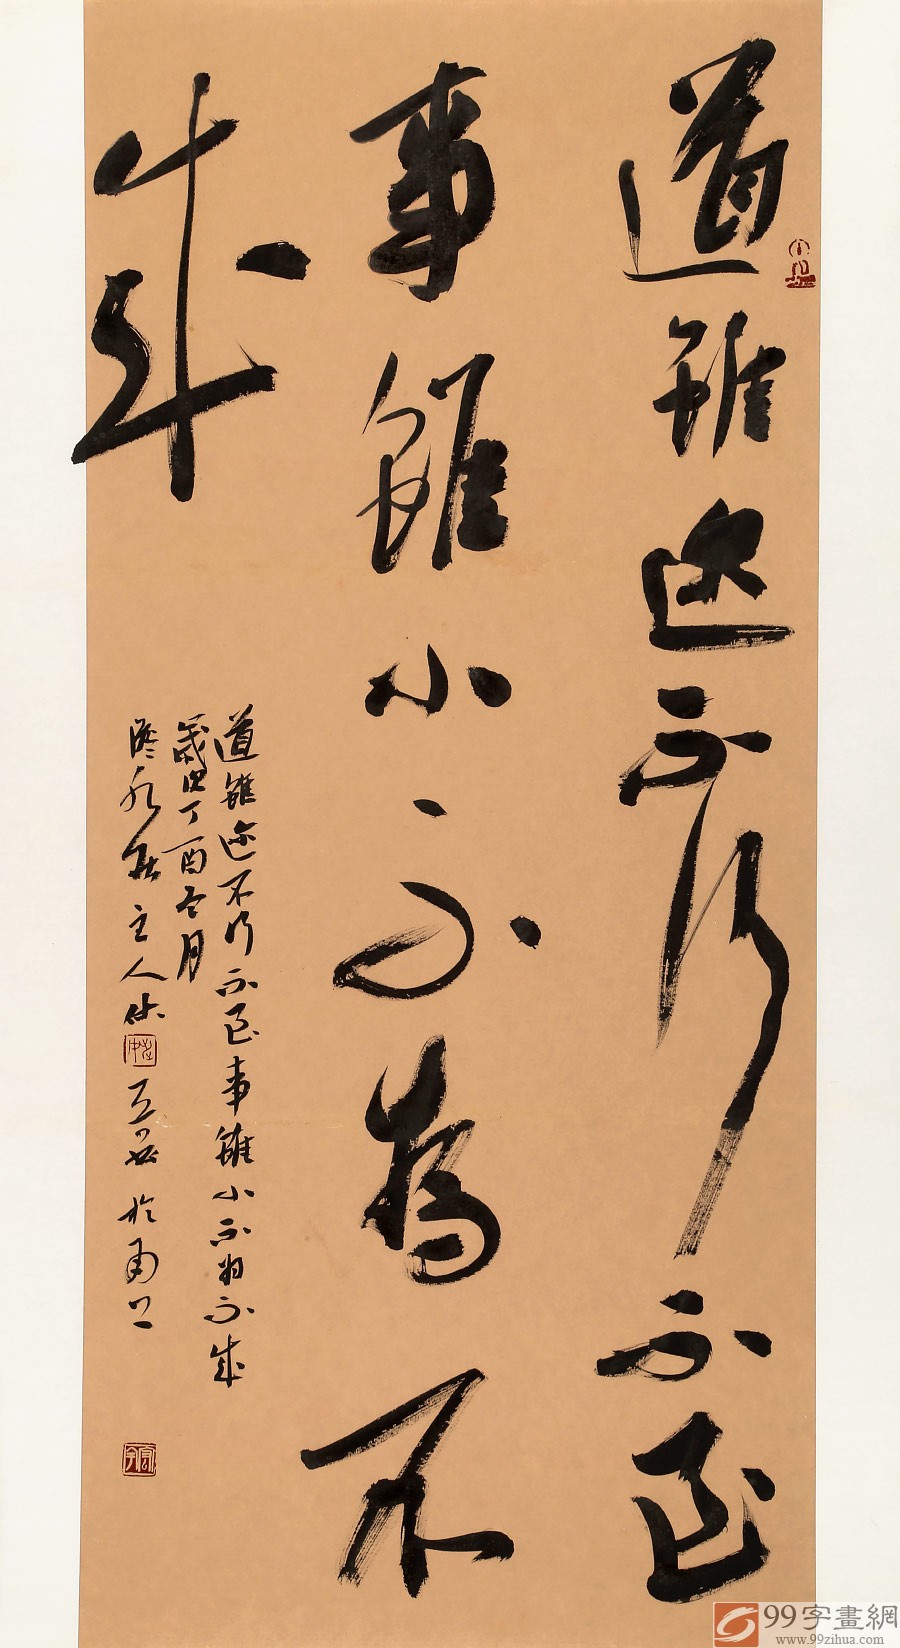 道雖迩不行不至
事雖小不為不
成
道雖迩不行不至事雖小不為不成
歲次丁酉冬月
主人
於甬上
99字畫網
www.99zihua.com